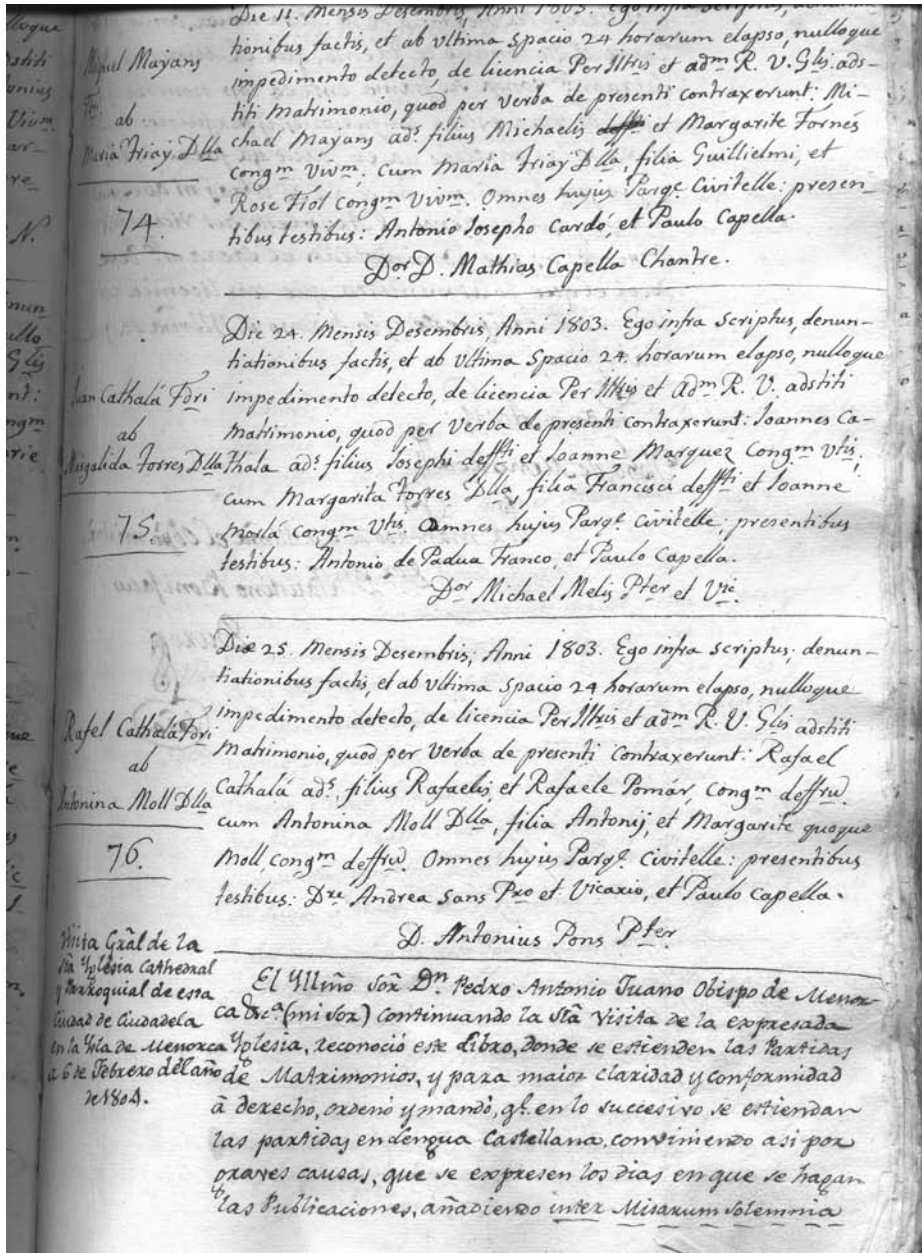 Die 11. Mensis Desembris, Anni 1803. Ego infra scriptus,
tionibus factis, et ab Vltima Spacio 24 horarum elapso, nulloque
impedimento detecto, de licencia Per Iltris et adm R. V. Glis. ads-
titi Matrimonio, quod per verba de presenti contraxerunt: Mi-
chael Mayans ads. filius Michaelis et Margarite Fornés
congm Vivm, Cum Maria Triay Dlla, filia Guillielmi, et
Rose Fiol Congm Vivm. Omnes hujus Parqe Civitelle: presen-
tibus testibus: Antonio Iosepho Cardó, et Paulo Capella.
Dor D. Mathias Capella Chantre.
Miquel Mayans
Fdri
ab
Maria Triay Dlla
74.
Die 24. Mensis Desembris, Anni 1803. Ego infra Scriptus, denun-
tiationibus factis, et ab Vltima Spacio 24. horarum elapso, nulloque
impedimento detecto, de licencia Per Iltris et Adm R. V. adstiti
Matrimonio, quod per Verba de presenti contraxerunt: Ioannes Ca-
thala ads. filius Iosephi deffti et Ioanne Marquez Congm Vtis.
cum Margarita Torres Dlla, filia Francisci deffti et Ioanne
Morlá congm Vtis. Omnes hujus Parqe. Civitelle; presentibus
testibus: Antonio de Padua Franco, et Paulo Capella.
Dor Michael Melis Pter et Vic.
Juan Cathalá Fdri
ab
Margalida Torres Dlla
75.
Die 25. Mensis Desembris; Anni 1803. Ego infra scriptus; denun-
tiationibus factis, et ab Vltima Spacio 24 horarum elapso, nulloque
impedimento detecto, de licencia Per Iltris et adm R. V. Glis adstiti
Matrimonio, quod per Verba de presenti Contraxerunt: Rafael
Cathalá ads. filius Rafaelis et Rafaele Pomár, Congm deffrw.
cum Antonina Moll Dlla, filia Antonij, et Margarite quoque
Moll, congm deffrw. Omnes hujus Parqe. Civitelle: presentibus
testibus: Dre Andrea Sans Pro et Vicario, et Paulo Capella.
D. Antonius Pons Pter
Rafel Cathalá Fdri
ab
Antonina Moll Dlla
76.
Visita Gral de la
Sta Yglesia Cathedral
y Parroquial de esta
Ciudad de Ciudadela
en la Ysla de Menorca
a 6 de Febrero del año
de 1804.
El Yllmo Sor Dn Pedro Antonio Juano Obispo de Menor-
ca &ca (mi Sor) continuando la Sta Visita de la expresada
Yglesia, reconoció este Libro, donde se estienden las Partidas
de Matrimonios, y para maior claridad y conformidad
â derecho, ordenó y mandó, qe. en lo successivo se estiendan
las partidas en Lengua Castellana, conviniendo asi por
graves causas, que se expresen los dias en que se hagan
las Publicaciones, añadiendo inter Misarum Solemnia